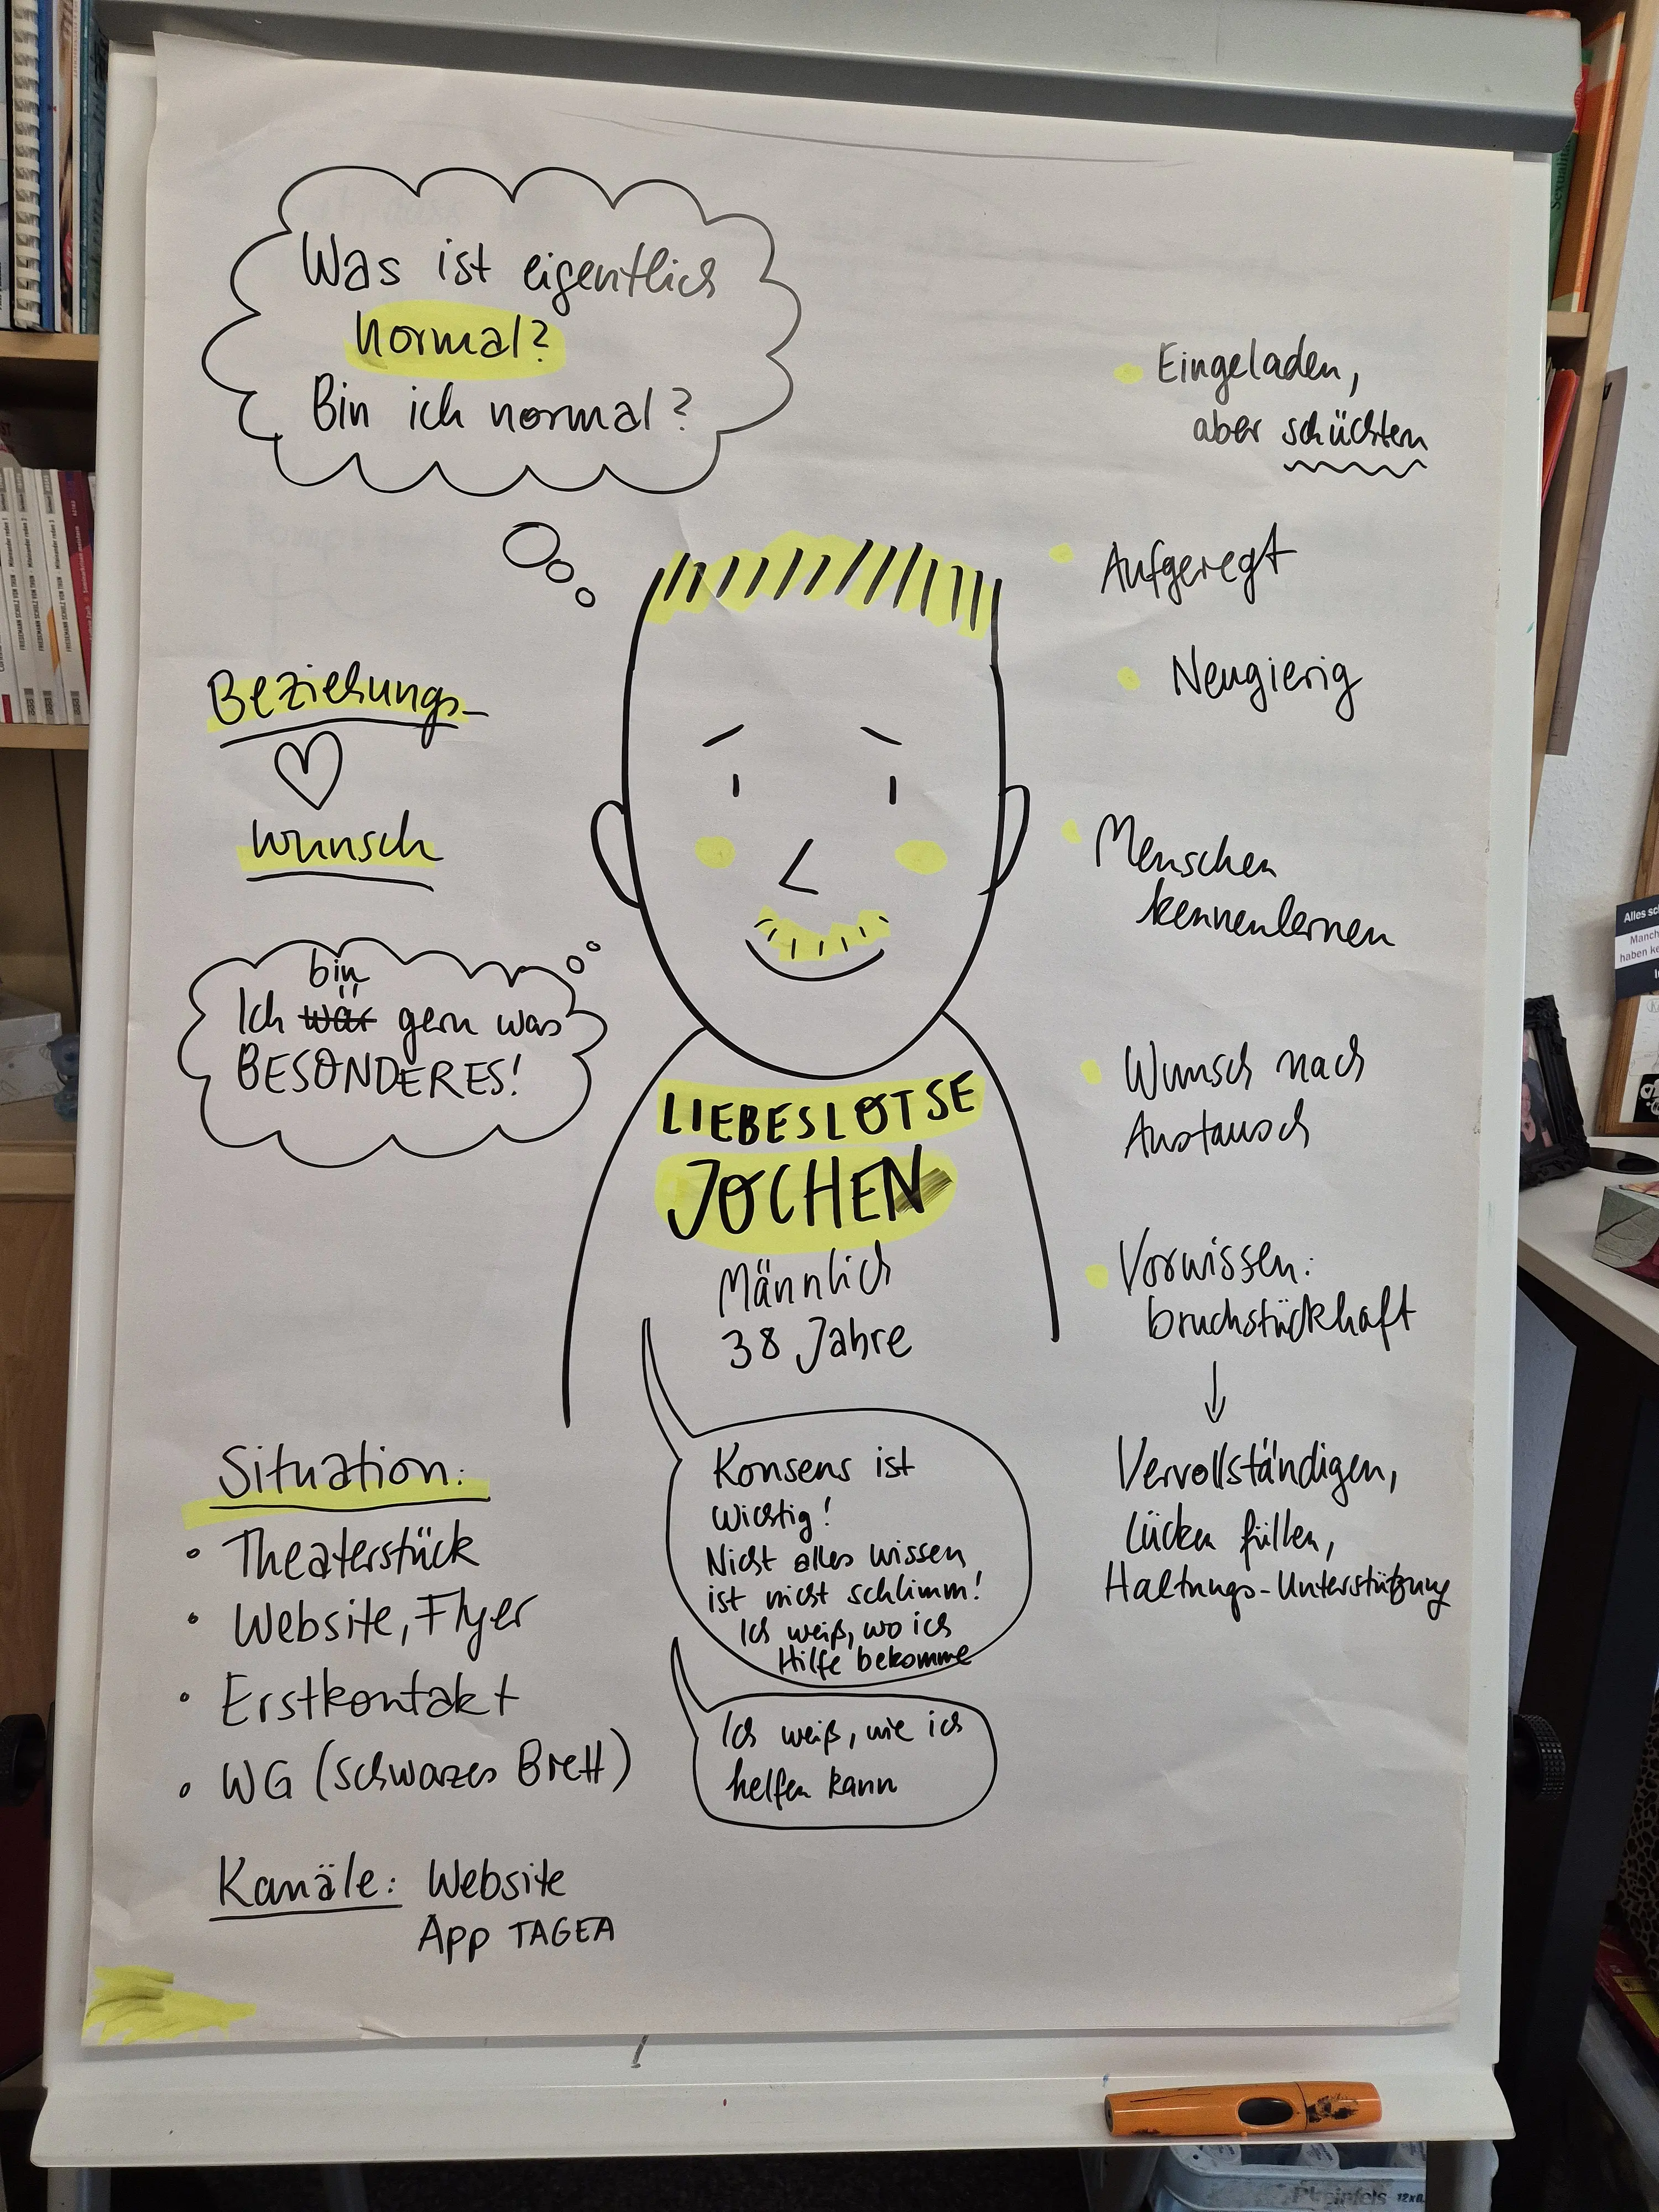 Was ist eigentlich
normal?
Bin ich normal?
Eingeladen,
aber schüchtern
Aufgeregt
Neugierig
Menschen
kennenlernen
Wunsch nach
Austausch
Vorwissen:
bruchstückhaft
↓
Vervollständigen,
Lücken füllen,
Haltungs-Unterstützung
Beziehungs-
wunsch
bin
Ich wär gern was
BESONDERES!
LIEBESLOTSE
JOCHEN
Männlich
38 Jahre
Konsens ist
wichtig!
Nicht alles wissen
ist nicht schlimm!
Ich weiß, wo ich
Hilfe bekomme
Ich weiß, wie ich
helfen kann
Situation:
• Theaterstück
• Website, Flyer
• Erstkontakt
• WG (Schwarzes Brett)
Kanäle: Website
App TAGEA
Alles sc
Manch
haben ke